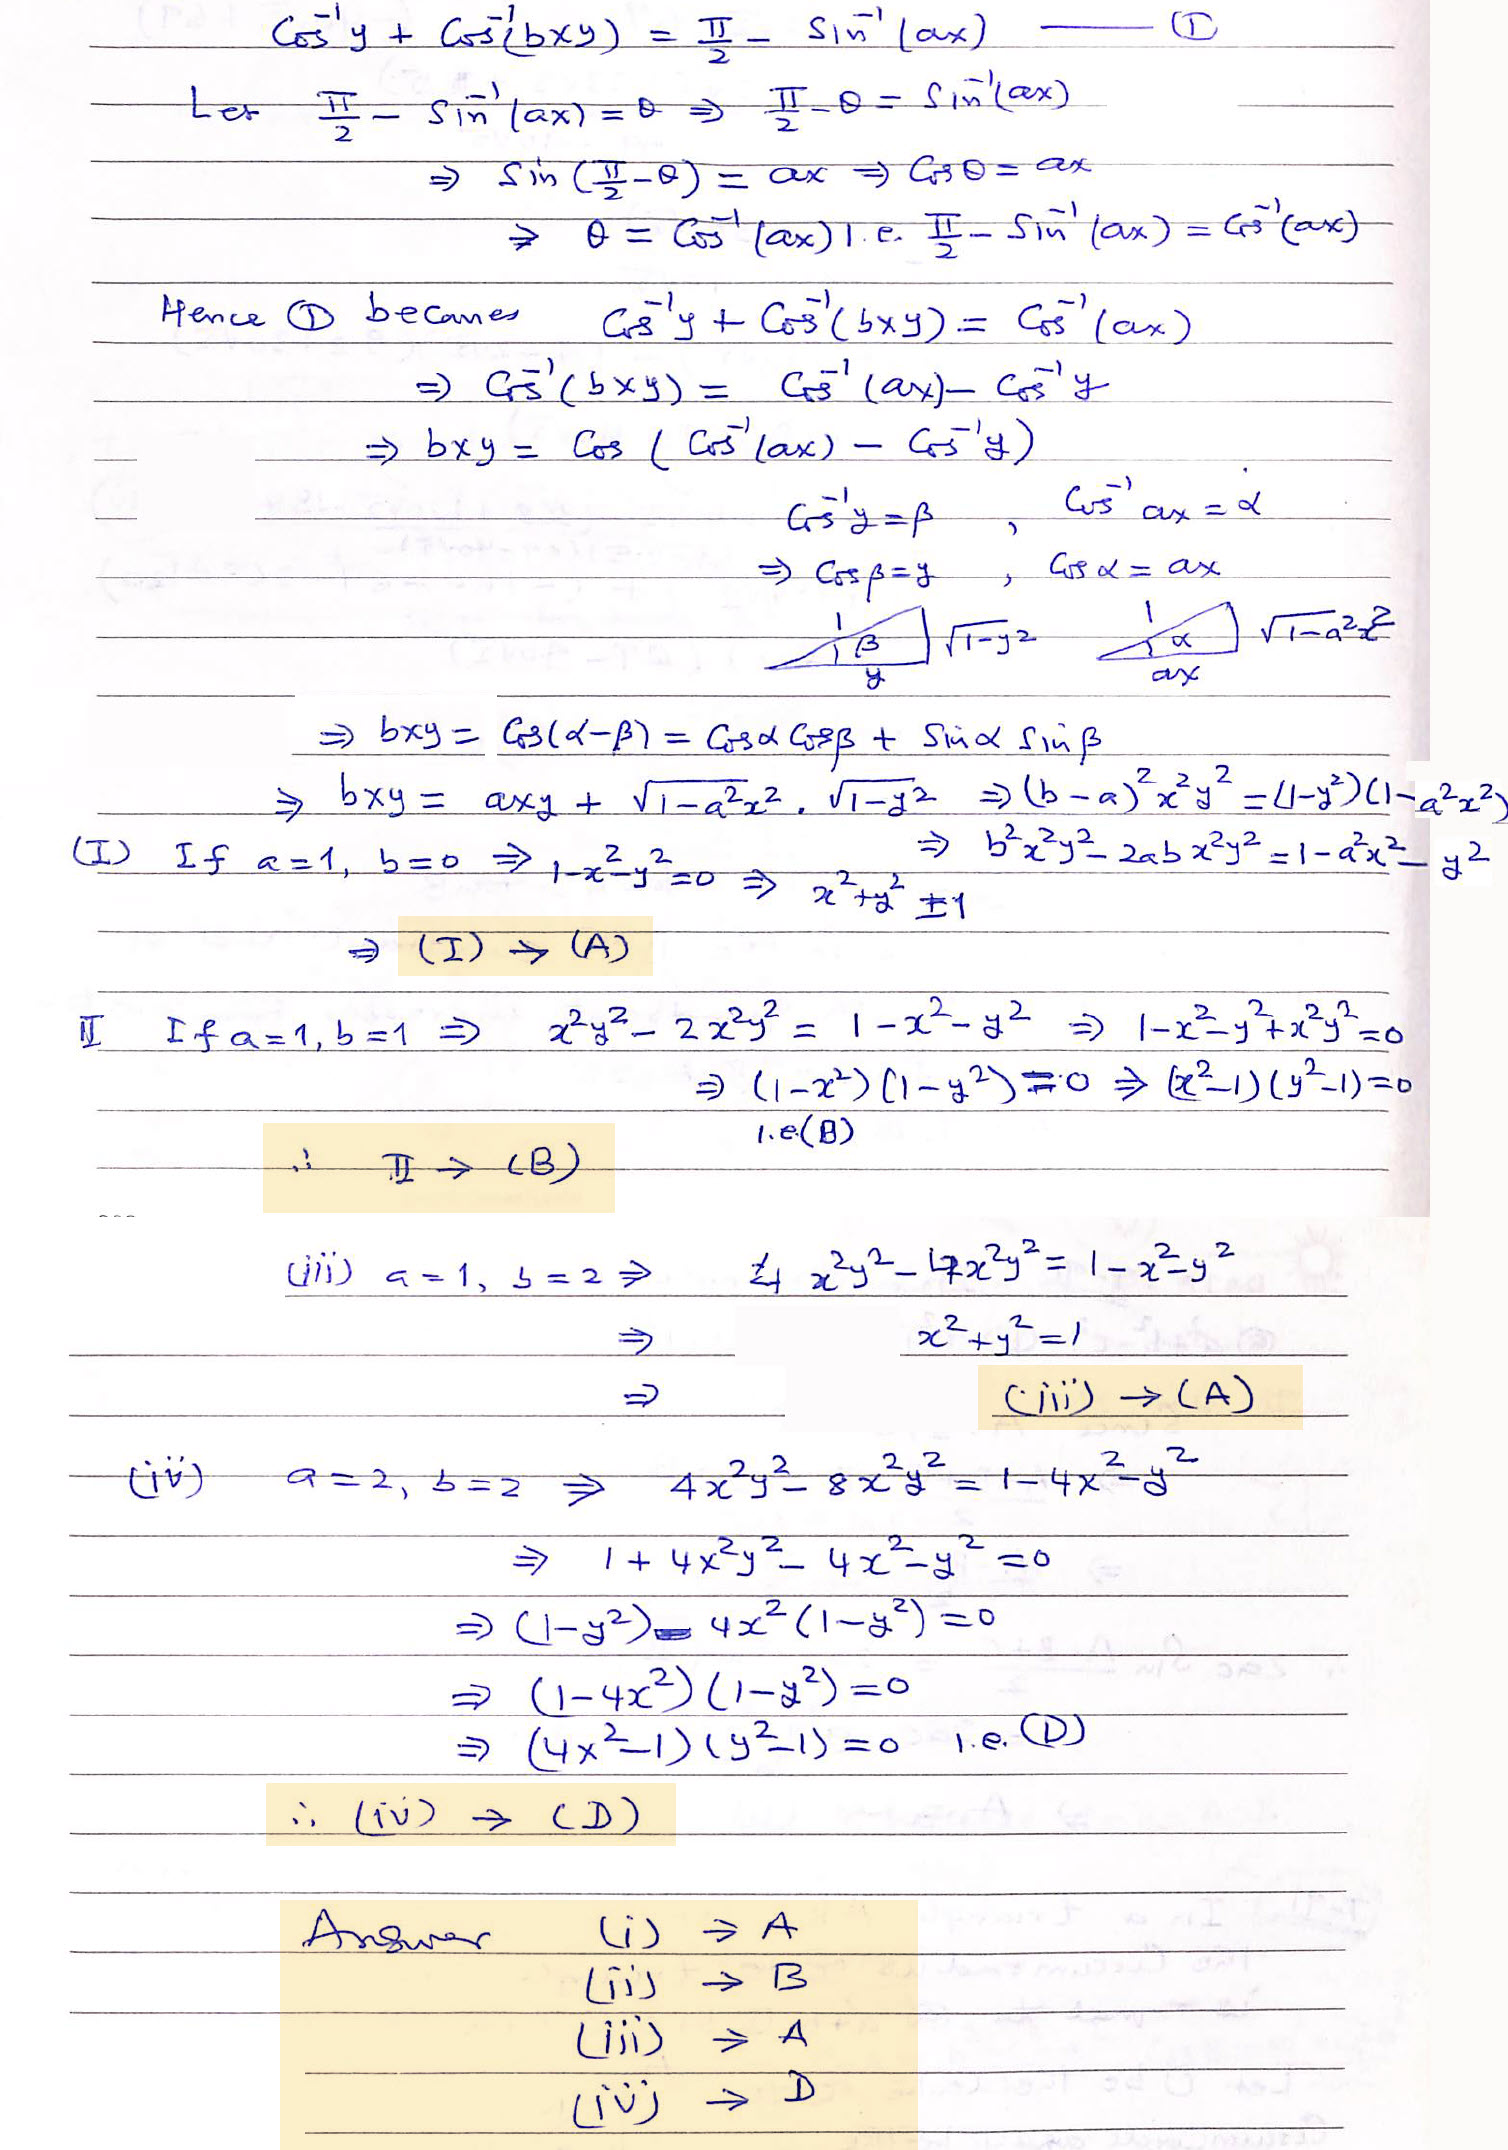 Cos⁻¹y + Cos⁻¹(bxy) = π/2 − Sin⁻¹(ax) —— (I)
Let π/2 − Sin⁻¹(ax) = θ ⇒ π/2 − θ = Sin⁻¹(ax)
⇒ Sin(π/2 − θ) = ax ⇒ Cosθ = ax
⇒ θ = Cos⁻¹(ax) i.e. π/2 − Sin⁻¹(ax) = Cos⁻¹(ax)
Hence (I) becomes Cos⁻¹y + Cos⁻¹(bxy) = Cos⁻¹(ax)
⇒ Cos⁻¹(bxy) = Cos⁻¹(ax) − Cos⁻¹y
⇒ bxy = Cos(Cos⁻¹(ax) − Cos⁻¹y)
Cos⁻¹y = β , Cos⁻¹ax = α
⇒ Cosβ = y , Cosα = ax
1 β y √1−y² 1 α ax √1−a²x²
⇒ bxy = Cos(α−β) = Cosα Cosβ + Sinα Sinβ
⇒ bxy = axy + √1−a²x² . √1−y² ⇒ (b−a)²x²y² = (1−y²)(1−a²x²)
⇒ b²x²y² − 2abx²y² = 1−a²x²−y²
(I) If a=1, b=0 ⇒ 1−x²−y²=0 ⇒ x²+y² = 1
⇒ (I) → (A)
II If a=1, b=1 ⇒ x²y² − 2x²y² = 1−x²−y² ⇒ 1−x²−y²+x²y²=0
⇒ (1−x²)(1−y²) = 0 ⇒ (x²−1)(y²−1)=0
i.e.(B)
∴ II → (B)
(iii) a=1, b=2 ⇒ 4x²y² − 4x²y² = 1−x²−y²
⇒ x²+y²=1
⇒ (iii) → (A)
(iv) a=2, b=2 ⇒ 4x²y² − 8x²y² = 1−4x²−y²
⇒ 1+4x²y² − 4x²−y² = 0
⇒ (1−y²) − 4x²(1−y²) = 0
⇒ (1−4x²)(1−y²) = 0
⇒ (4x²−1)(y²−1) = 0 i.e. (D)
∴ (iv) → (D)
Answer (i) → A
(ii) → B
(iii) → A
(iv) → D